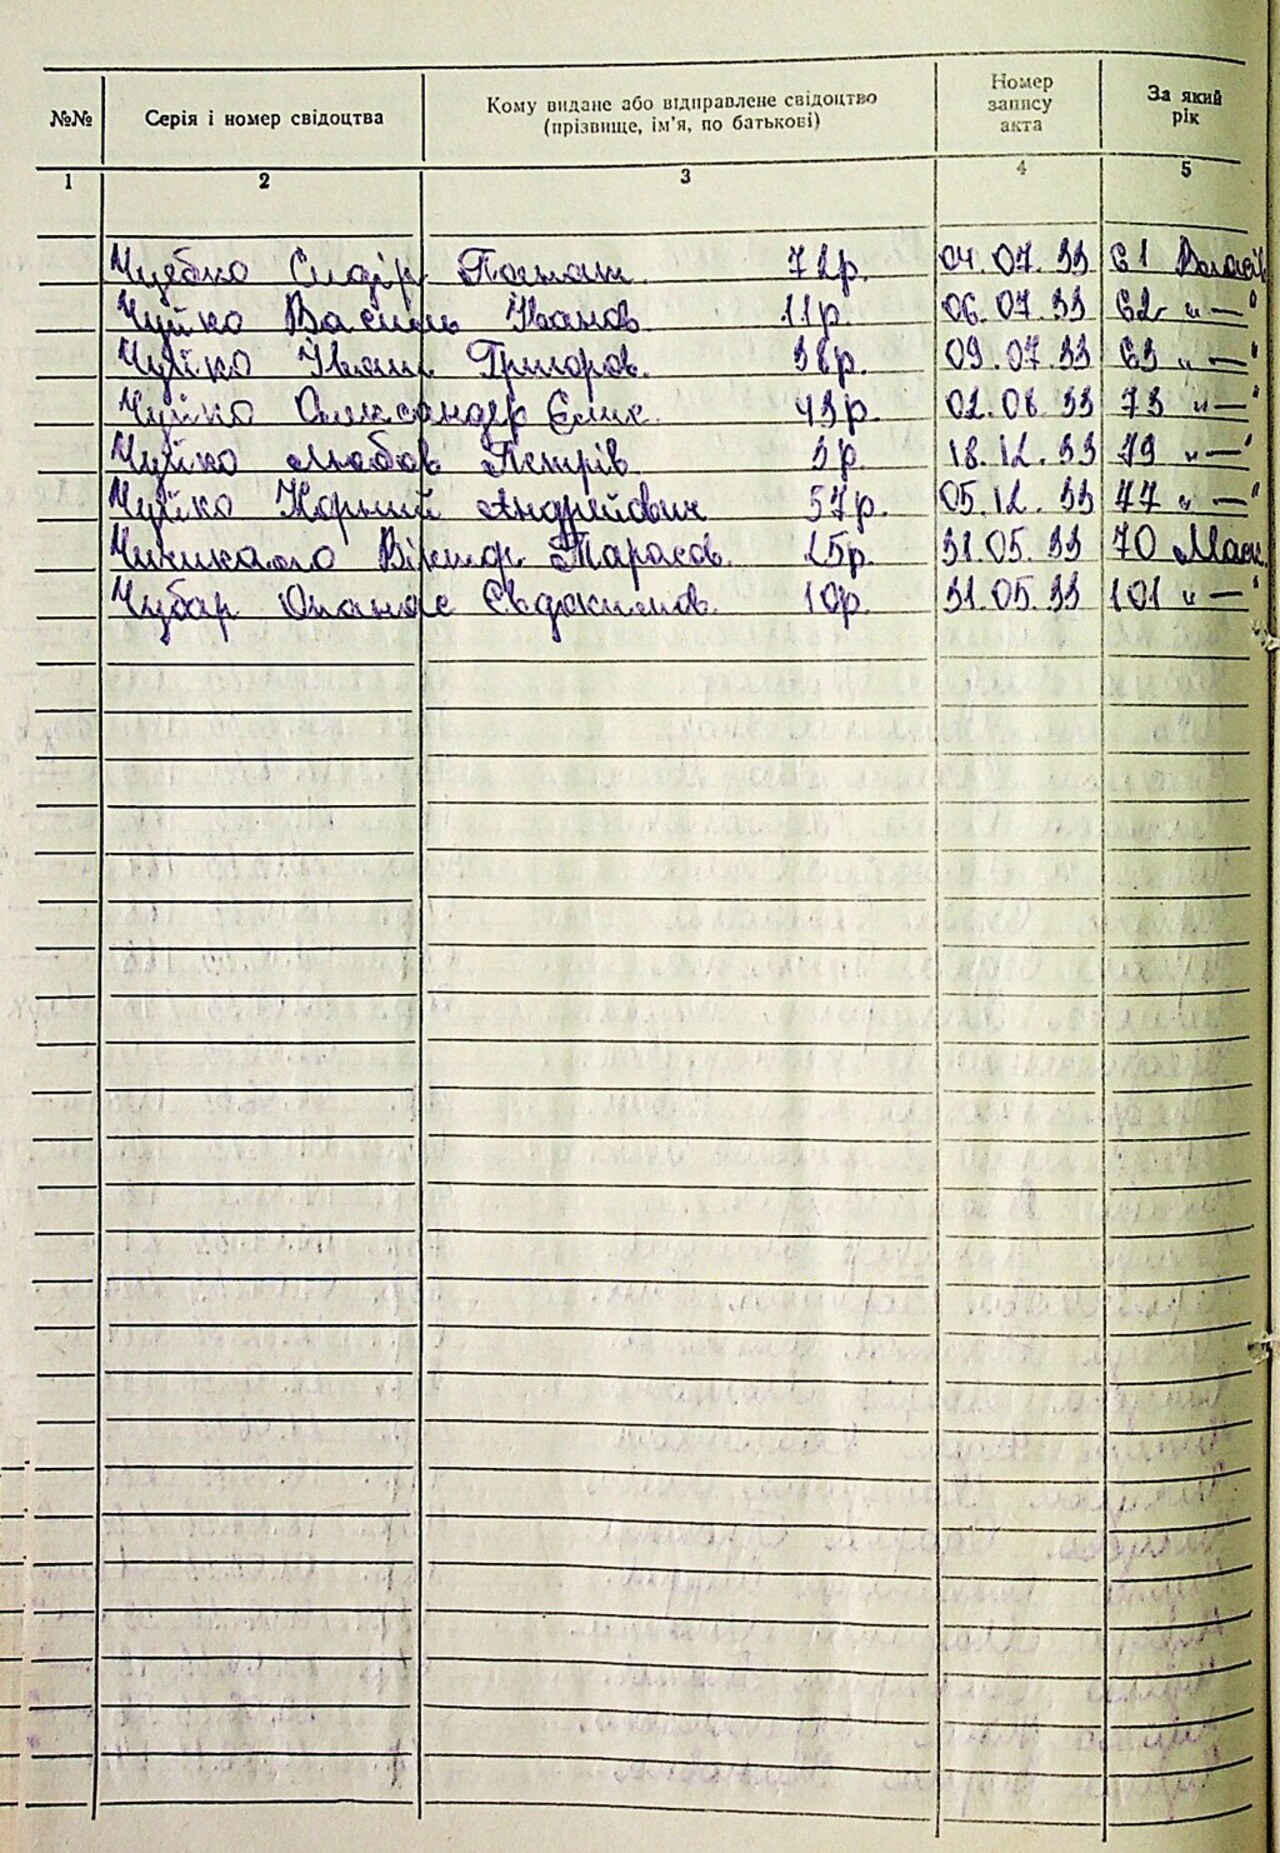 №№ Серія і номер свідоцтва Кому видане або відправлене свідоцтво (прізвище, ім'я, по батькові) Номер запису акта За який рік
1 2 3 4 5
Сидір 04.07.33 61
Чуйко Василь Іванов 11р. 06.07.33 62 "—"
Чуйко Іван Григоров. 38р. 09.07.33 63 "—"
Чуйко Александр Єлис. 43р. 02.08.33 73 "—"
Чуйко Любов Петрів 3р. 18.12.33 79 "—"
Чуйко Корній Андрійович 57р. 05.12.33 77 "—"
Чичикало Віктор Тарасов. 25р. 31.05.33 70
Чубар Опанас Євдокимов. 10р. 31.05.33 101 "—"